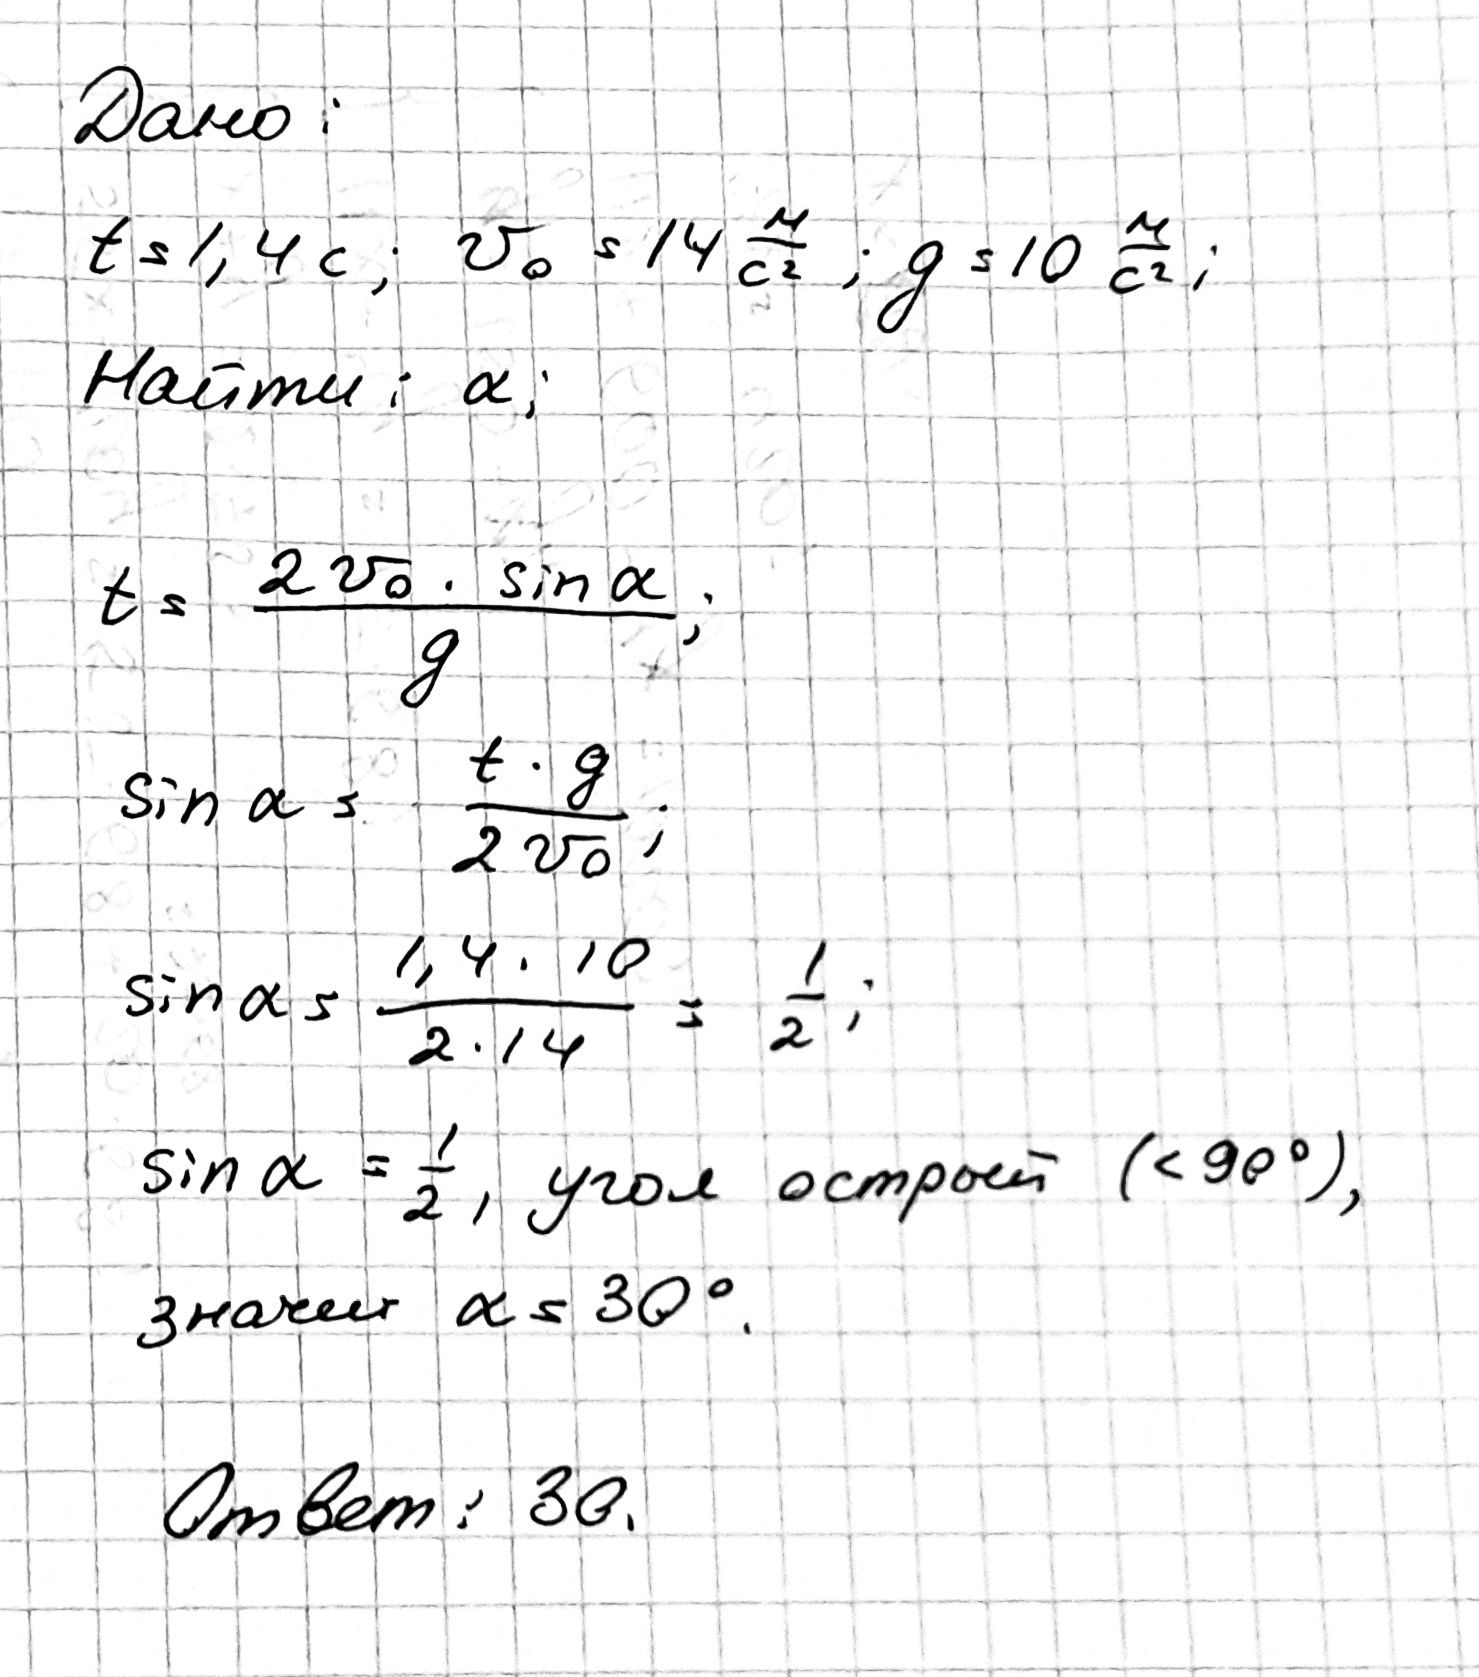 Дано:
t = 1,4 с; v₀ = 14 м/с²; g = 10 м/с²;
Найти: α;
t = (2v₀ · sin α)/g;
sin α = (t · g)/(2v₀);
sin α = (1,4 · 10)/(2 · 14) = 1/2;
sin α = 1/2, угол острый (< 90°),
значит α = 30°.
Ответ: 30.